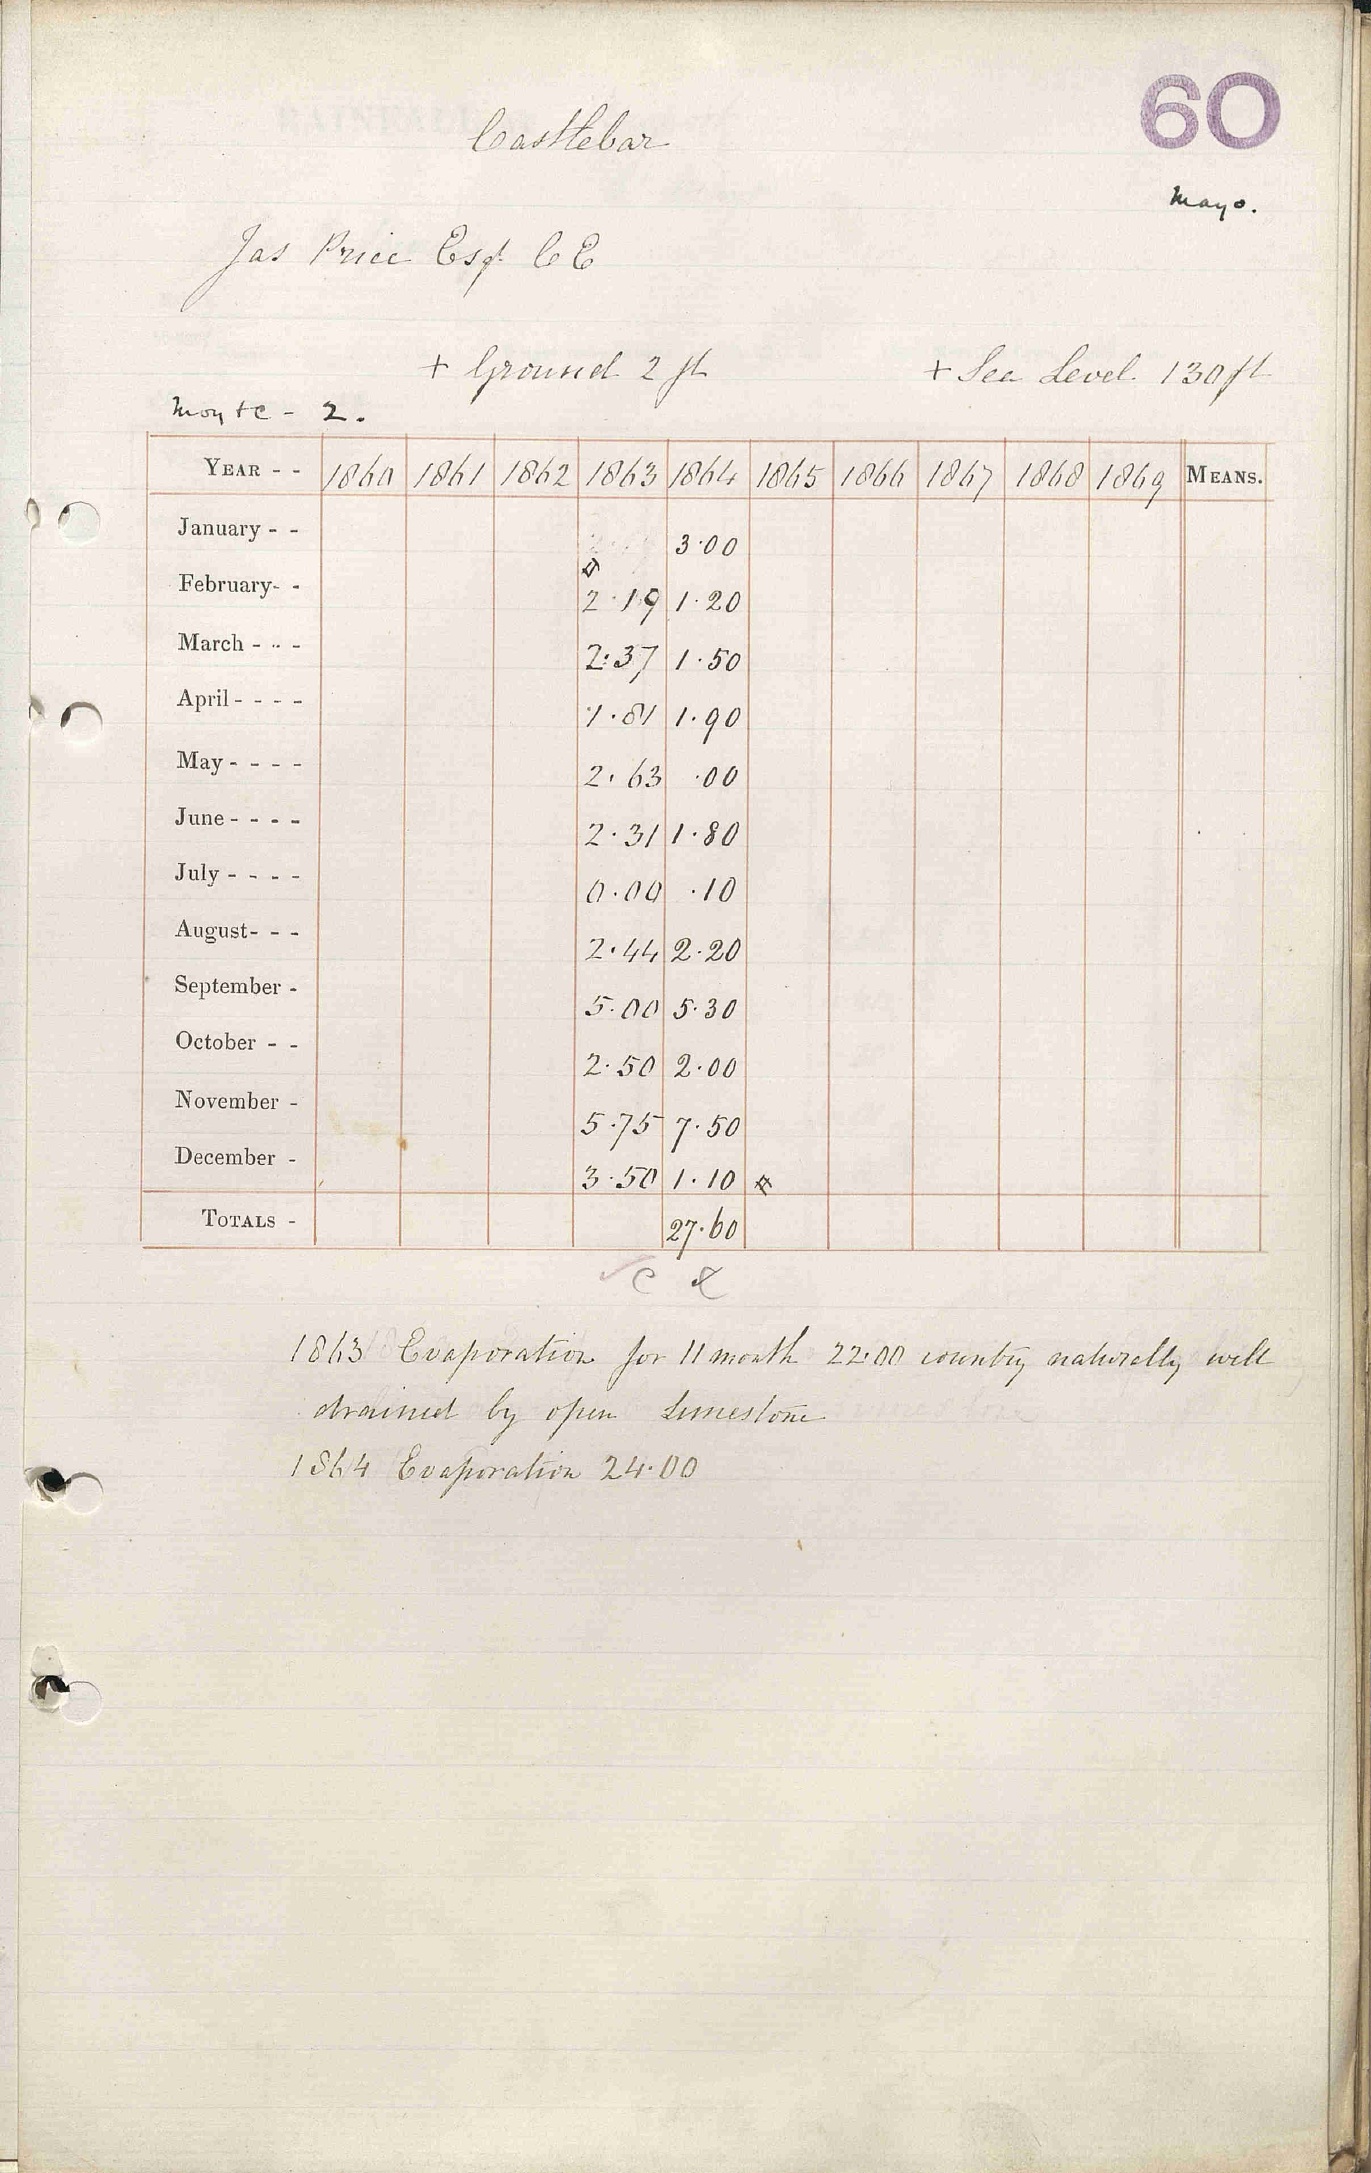 60
Castlebar
Mayo.
Jas Price Esqr C E
+ Ground 2 ft + Sea Level 130 ft
- 2.
YEAR - - 1860 1861 1862 1863 1864 1865 1866 1867 1868 1869 MEANS.
January - - 3·00
February- - 2·19 1·20
March - - - 2·37 1·50
April - - - - 1·81 1·90
May - - - - 2·63 ·00
June - - - - 2·31 1·80
July - - - - 0·00 ·10
August- - - 2·44 2·20
September - 5·00 5·30
October - - 2·50 2·00
November - 5·75 7·50
December - 3·50 1·10
TOTALS - 27·60
C
1863 Evaporation for 11 month 22·00 country naturally well
drained by open Limestone
1864 Evaporation 24·00